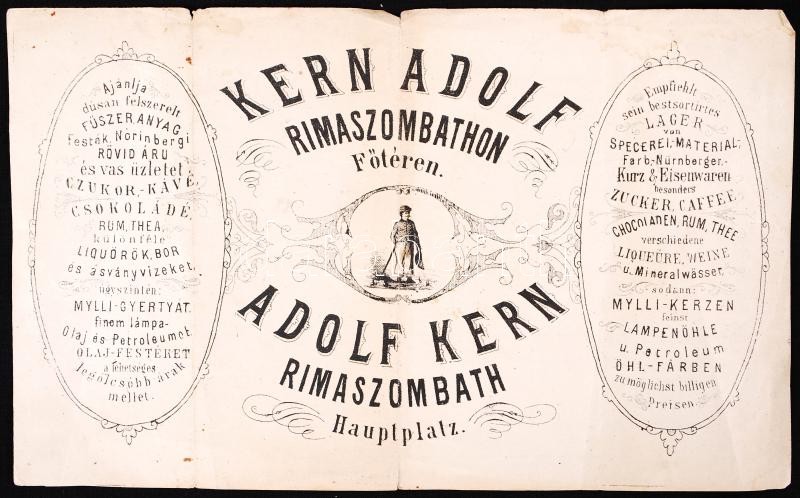 Ajánlja
dúsan felszerelt
FŰSZER ANYAG,
Festék, Nörinbergi
RÖVID ÁRU
és vas üzletét
CZUKOR,-KÁVÉ,
CSOKOLÁDÉ,
RUM, THEA,
különféle
LIQUÖRÖK, BOR
és ásványvizeket,
úgyszintén:
MYLLI-GYERTYAT,
finom lámpa-
Olaj és Petroleumot,
OLAJ-FESTÉKET
a lehetséges
legolcsóbb árak
mellet.
KERN ADOLF
RIMASZOMBATHON
Főtéren.
ADOLF KERN
RIMASZOMBATH
Hauptplatz.
Empfiehlt
sein bestsortirtes
LAGER
von
SPECEREI,-MATERIAL,-
Farb,-Nürnberger,-
Kurz & Eisenwaren
besonders
ZUCKER, CAFFEE
CHOCOLADEN, RUM, THEE
verschiedene
LIQUEÜRE, WEINE
u. Mineralwässer,
sodann:
MYLLI-KERZEN
feinst
LAMPENÖHLE
u. Petroleum
ÖHL-FARBEN
zu möglichst billigen
Preisen.